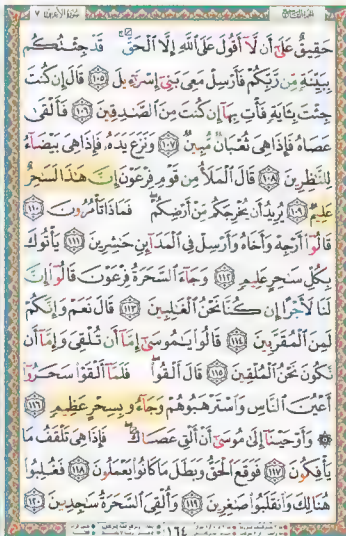 الجزء التاسع سورة الأعراف ٧
حَقِيقٌ عَلَىٰ أَن لَّا أَقُولَ عَلَى ٱللَّهِ إِلَّا ٱلْحَقَّ قَدْ جِئْتُكُم
بِبَيِّنَةٍ مِّن رَّبِّكُمْ فَأَرْسِلْ مَعِىَ بَنِىٓ إِسْرَٰٓءِيلَ ١٠٥ قَالَ إِن كُنتَ
جِئْتَ بِـَٔايَةٍ فَأْتِ بِهَآ إِن كُنتَ مِنَ ٱلصَّٰدِقِينَ ١٠٦ فَأَلْقَىٰ
عَصَاهُ فَإِذَا هِىَ ثُعْبَانٌ مُّبِينٌ ١٠٧ وَنَزَعَ يَدَهُۥ فَإِذَا هِىَ بَيْضَآءُ
لِلنَّٰظِرِينَ ١٠٨ قَالَ ٱلْمَلَأُ مِن قَوْمِ فِرْعَوْنَ إِنَّ هَٰذَا لَسَٰحِرٌ
عَلِيمٌ ١٠٩ يُرِيدُ أَن يُخْرِجَكُم مِّنْ أَرْضِكُمْ فَمَاذَا تَأْمُرُونَ ١١٠
قَالُوٓا۟ أَرْجِهْ وَأَخَاهُ وَأَرْسِلْ فِى ٱلْمَدَآئِنِ حَٰشِرِينَ ١١١ يَأْتُوكَ
بِكُلِّ سَٰحِرٍ عَلِيمٍ ١١٢ وَجَآءَ ٱلسَّحَرَةُ فِرْعَوْنَ قَالُوٓا۟ إِنَّ
لَنَا لَأَجْرًا إِن كُنَّا نَحْنُ ٱلْغَٰلِبِينَ ١١٣ قَالَ نَعَمْ وَإِنَّكُمْ
لَمِنَ ٱلْمُقَرَّبِينَ ١١٤ قَالُوا۟ يَٰمُوسَىٰٓ إِمَّآ أَن تُلْقِىَ وَإِمَّآ أَن
نَّكُونَ نَحْنُ ٱلْمُلْقِينَ ١١٥ قَالَ أَلْقُوا۟ فَلَمَّآ أَلْقَوْا۟ سَحَرُوٓا۟
أَعْيُنَ ٱلنَّاسِ وَٱسْتَرْهَبُوهُمْ وَجَآءُو بِسِحْرٍ عَظِيمٍ ١١٦
۞ وَأَوْحَيْنَآ إِلَىٰ مُوسَىٰٓ أَنْ أَلْقِ عَصَاكَ فَإِذَا هِىَ تَلْقَفُ مَا
يَأْفِكُونَ ١١٧ فَوَقَعَ ٱلْحَقُّ وَبَطَلَ مَا كَانُوا۟ يَعْمَلُونَ ١١٨ فَغُلِبُوا۟
هُنَالِكَ وَٱنقَلَبُوا۟ صَٰغِرِينَ ١١٩ وَأُلْقِىَ ٱلسَّحَرَةُ سَٰجِدِينَ ١٢٠
١٦٤